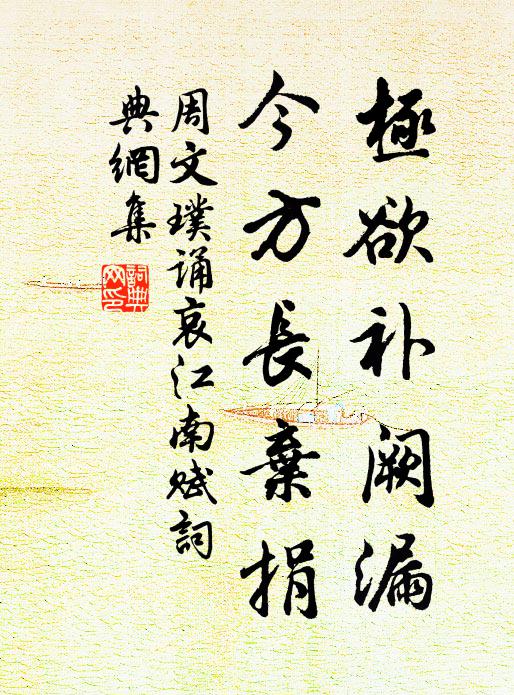 極欲补阙漏
今方長棄捐
周文璞誦哀江南赋詞
典網集
詞典
网印